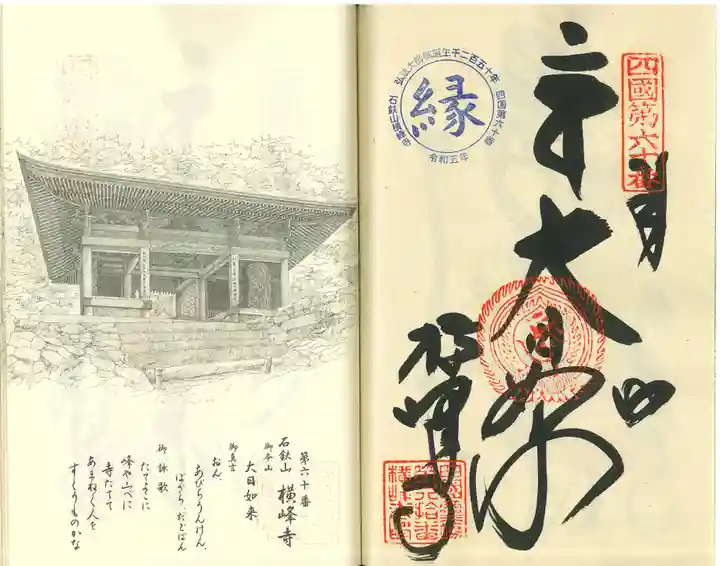 四國第六十番
奉
大日如来
横峰寺
弘法大師御誕生千二百五十年
四国第六十番
石鈇山横峰寺
令和五年
縁
第六十番
石鈇山 横峰寺
大日如来
御真言
おん
あびらうんけん
ばざら だどばん
御詠歌
たてよこに
峰や山べに
寺たてて
あまねく人を
すくうものかな